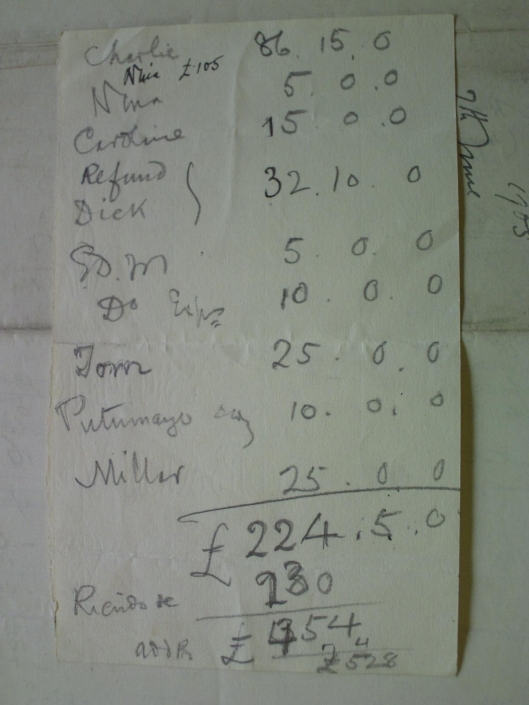 Charlie 86. 15. 0
Nina £105
Nina 5. 0. 0
Caroline 15. 0. 0
Refund
Dick } 32. 10. 0
5. 0. 0
Do Exps 10. 0. 0
25. 0. 0
Putumayo 10. 0. 0
Miller 25. 0. 0
£224. 5. 0
230
£454
£528